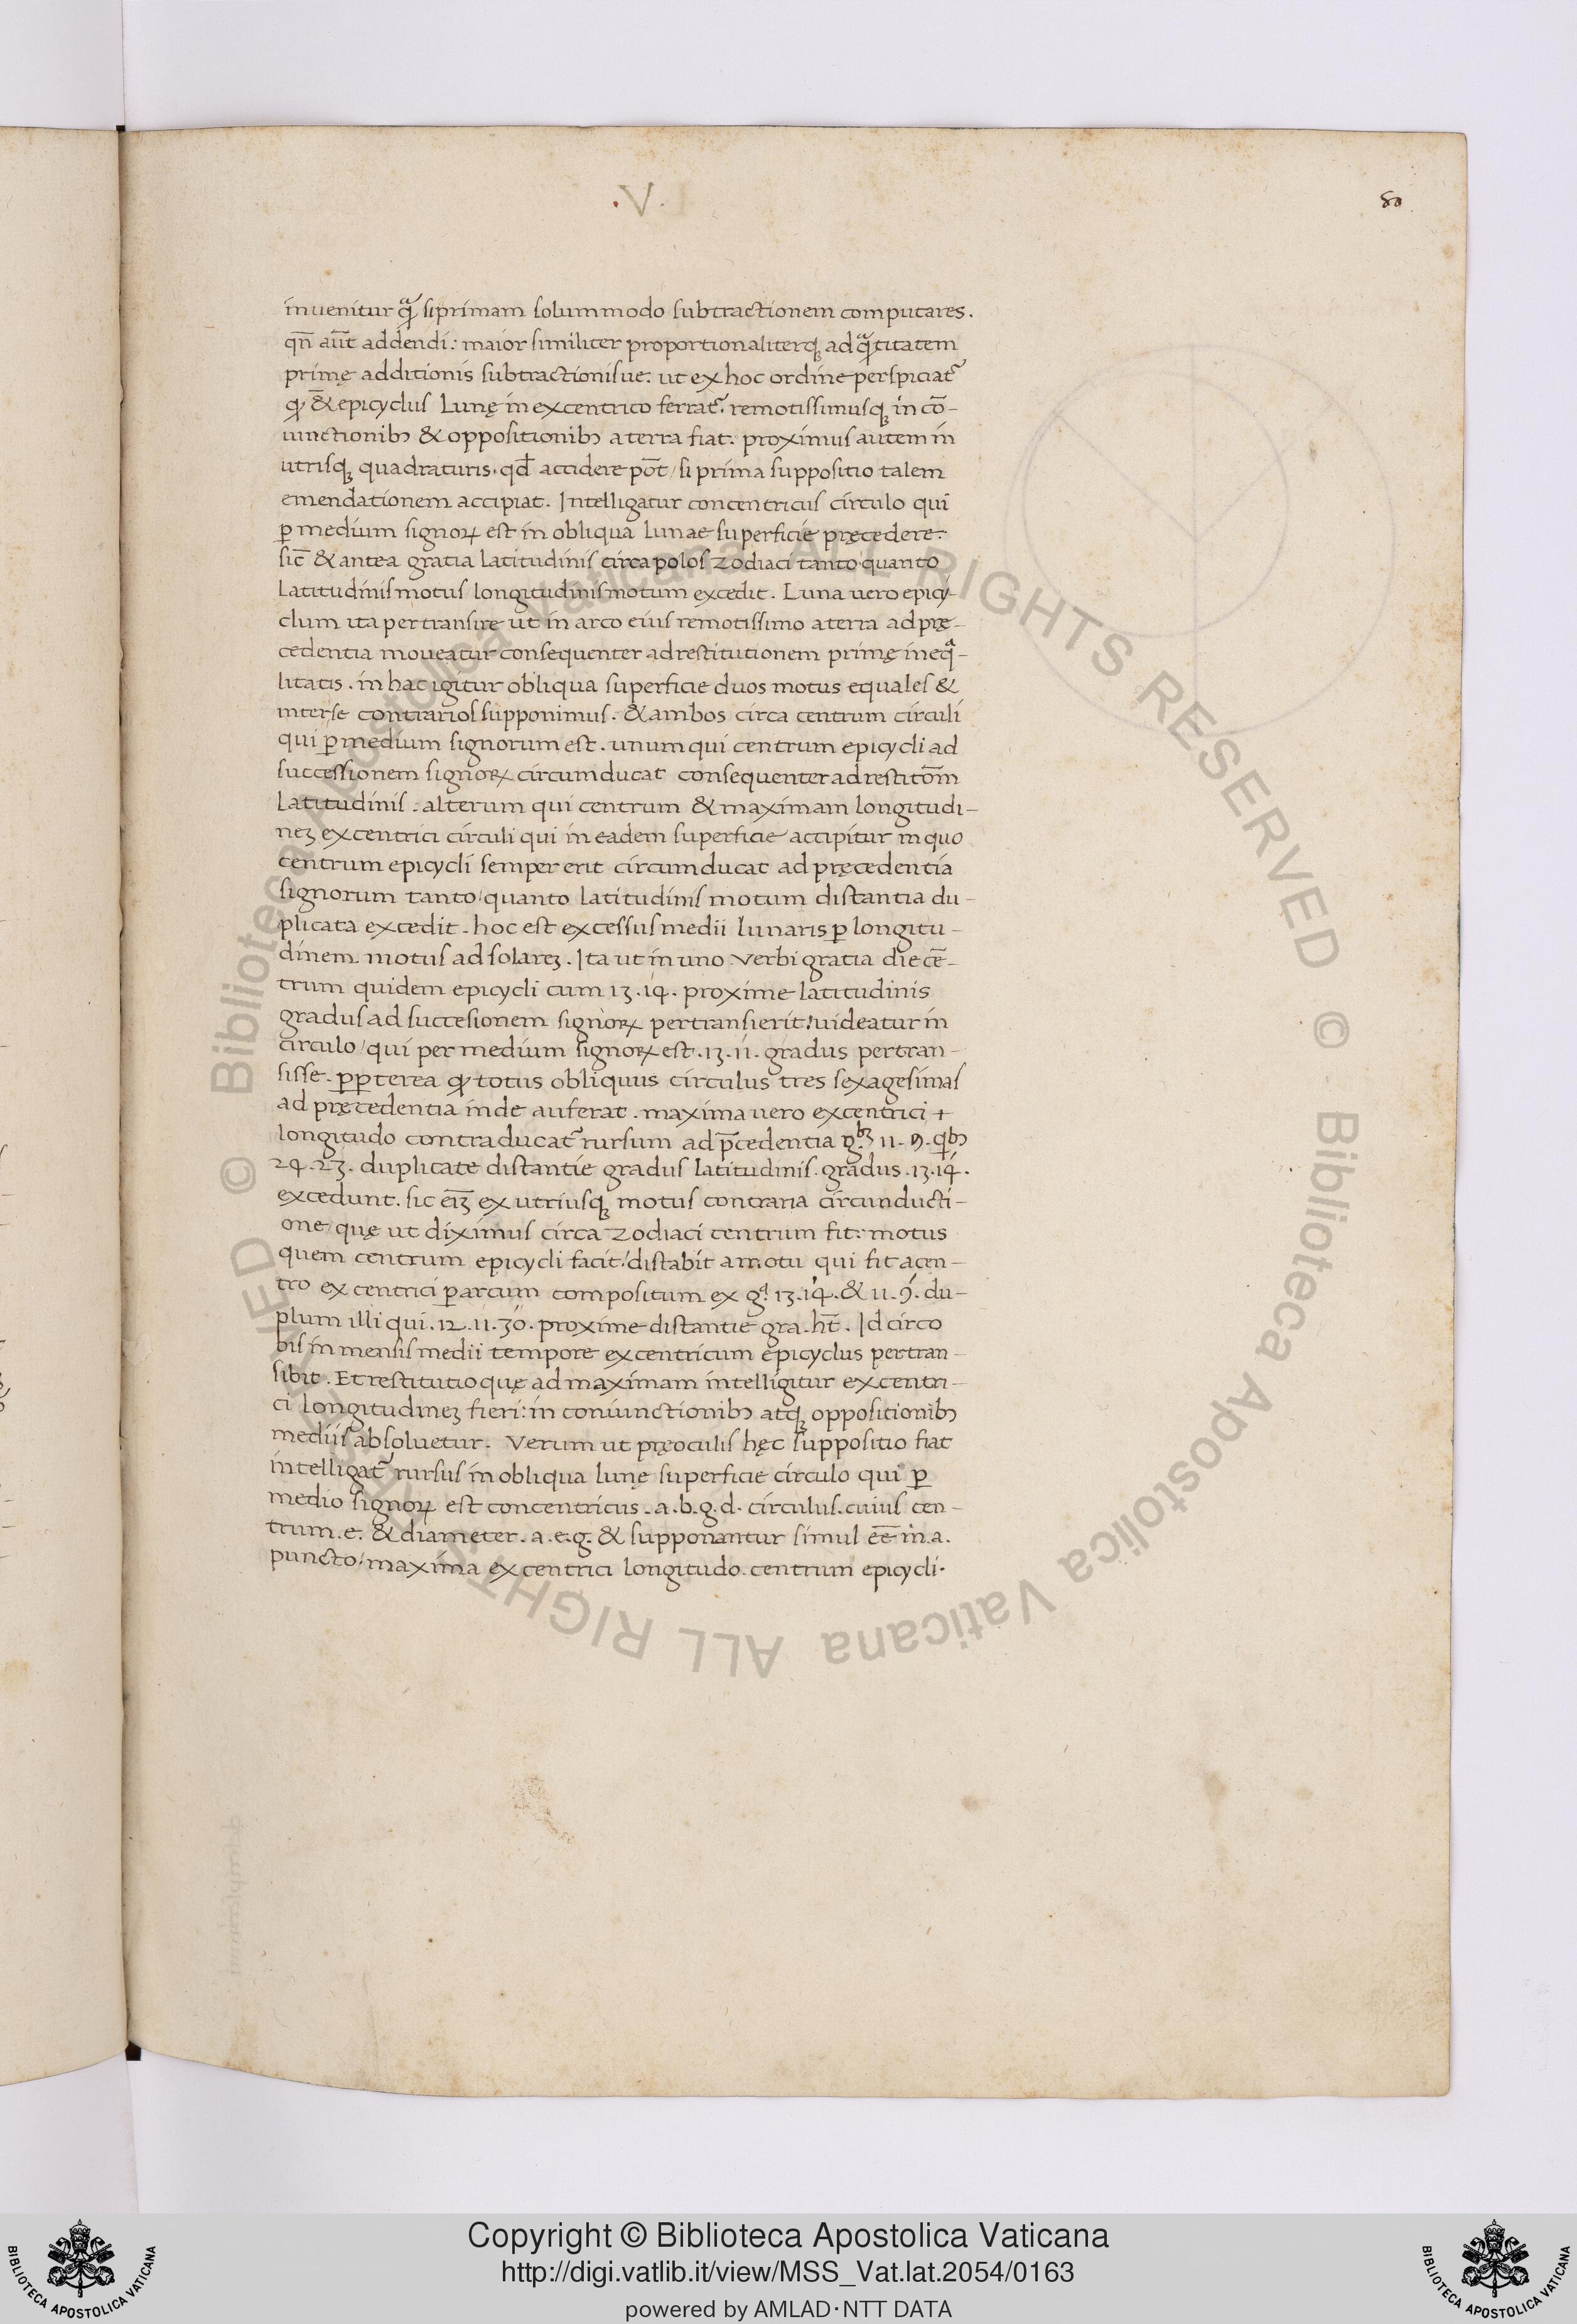 .V.
80
inuenitur qᷓ siprimam solummodo subtractionem computares.
qn̄ aūt addendi: maior similiter proportionaliterqꝫ ad qᷓtitatem
primę additionis subtractionisue: ut ex hoc ordine perspiciat᷑
ꝙ & epicyclus Lunę in excentrico ferrat᷑. remotissimusqꝫ in cō-
iunctionibꝫ & oppositionibꝫ a terra fiat: proximus autem in
utrisqꝫ quadraturis. qd̄ accidere pōt / si prima suppositio talem
emendationem accipiat. Intelligatur concentricus circulo qui
ꝑ medium signoꝝ est in obliqua lunae superficie pręcedere:
sic̄ & antea gratia latitudinis circa polos zodiaci tanto quanto
latitudinis motus longitudinis motum excedit. Luna uero epicy-
clum ita pertransire ut in arco eius remotissimo a terra ad prę-
cedentia moueatur consequenter ad restitutionem primę ineqᷓ-
litatis. in hac igitur obliqua superficie duos motus equales &
inter se contrarios supponimus. & ambos circa centrum circuli
qui ꝑ medium signorum est. unum qui centrum epicycli ad
successionem signoꝝ circumducat consequenter ad restitōm
latitudinis. alterum qui centrum & maximam longitudi-
neꝫ excentrici circuli qui in eadem superficie accipitur in quo
centrum epicycli semper erit circumducat ad pręcedentia
signorum tanto / quanto latitudinis motum distantia du-
plicata excedit. hoc est excessus medii lunaris ꝑ longitu-
dinem motus ad solareꝫ. Ita ut in uno verbi gratia die cē-
trum quidem epicycli cum 13. 14. proxime latitudinis
gradus ad succesionem signoꝝ pertransierit! uideatur in
circulo / qui per medium signoꝝ est. 13. 11. gradus pertran-
sisse. ꝑꝑterea ꝙ totus obliquus circulus tres sexagesimas
ad pręcedentia inde auferat. maxima uero excentrici +
longitudo contraducat᷑ rursum ad p̄cedentia g.bꝫ 11. 9. qbꝫ
24. 23. duplicate distantie gradus latitudinis. gradus. 13. 14.
excedunt. sic eiꝫ ex utriusqꝫ motus contraria circunducti-
one / quę ut diximus circa zodiaci centrum fit: motus
quem centrum epicycli facit! distabit a motu qui fit a cen-
tro excentrici ꝑ arcum compositum ex g. 13. 14. & 11. 9. du-
plum illi qui. 12. 11. 30. proxime distantie gra. ht̄. Id circo
bis in mensis medii tempore excentricum epicyclus pertran-
sibit. Et restitutio quę ad maximam intelligitur excentri-
ci longitudineꝫ fieri: in coniunctionibꝫ atqꝫ oppositionibꝫ
mediis absoluetur. Verum ut pręoculis hęc suppositio fiat
intelligat᷑ rursus in obliqua lunę superficie circulo qui ꝑ
medio signoꝝ est concentricus. a. b. g. d. circulus. cuius cen-
trum. e. & diameter. a. e. g. & supponantur simul eē in. a.
puncto / maxima excentrici longitudo. centrum epicycli.
© Biblioteca Apostolica Vaticana ALL RIGHTS RESERVED © Biblioteca Apostolica Vaticana ALL RIGHTS RESERVED
Copyright © Biblioteca Apostolica Vaticana
http://digi.vatlib.it/view/MSS_Vat.lat.2054/0163
powered by AMLAD·NTT DATA
BIBLIOTECA APOSTOLICA VATICANA
BIBLIOTECA APOSTOLICA VATICANA